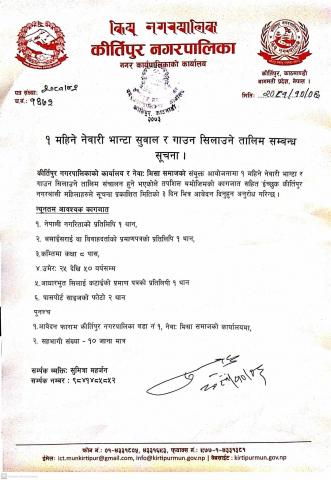 किय् नगरपालिक
कीर्तिपुर नगरपालिका
नगर कार्यपालिकाको कार्यालय
कीर्तिपुर, काठमाण्डौ
बागमती प्रदेश, नेपाल ।
पत्र संख्या: २०८१/८२
च.नं.: १७६२
मिति:- २०८१/१०/०६
२०५३
१ महिने नेवारी भान्टा सुवाल र गाउन सिलाउने तालिम सम्बन्ध
सूचना ।
कीर्तिपुर नगरपालिकाको कार्यालय र नेवा: मिसा समाजको संयुक्त आयोजनामा १ महिने नेवारी भान्टा र
गाउन सिलाउने तालिम संचालन हुने भएकोले तपशिल बमोजिमको कागजात सहित ईच्छुक कीर्तिपुर
नगरबासी महिलाहरुले सूचना प्रकाशित मितिको ३ दिन भित्र आवेदन दिनुहुन अनुरोध गरिन्छ ।
न्यूनतम आवश्यक कागजात
१. नेपाली नगरिताको प्रतिलिपि १ थान,
२. बसाईसराई वा विवाहदर्ताको प्रमाणपत्रको प्रतिलिपि १ थान,
३.कम्तिमा कक्षा ८ पास,
४.उमेर: २५ देखि ५० वर्षसम्म
५.आधारभूत सिलाई कटाईको प्रमाण पत्रको प्रतिलिपी १ थान
६. पासपोर्ट साइजको फोटो २ थान
पुनश्च
१.आवेदन फाराम कीर्तिपुर नगरपालिका वडा नं १, नेवा: मिसा समाजको कार्यालयमा,
२. सहभागी संख्या -१० जाना मात्र
सम्पर्क व्यक्ति: सुमित्रा महर्जन
सम्पर्क नम्बर : ९८४१४८५८५२
फोन नं.: ०१-४३३१८०५, ४३३१६९३, फ्याक्स नं.: ९७७-१-४३३१३८१
ईमेल: ict.munkirtipur@gmail.com, info@kirtipurmun.gov.np | वेबसाईट : kirtipurmun.gov.np